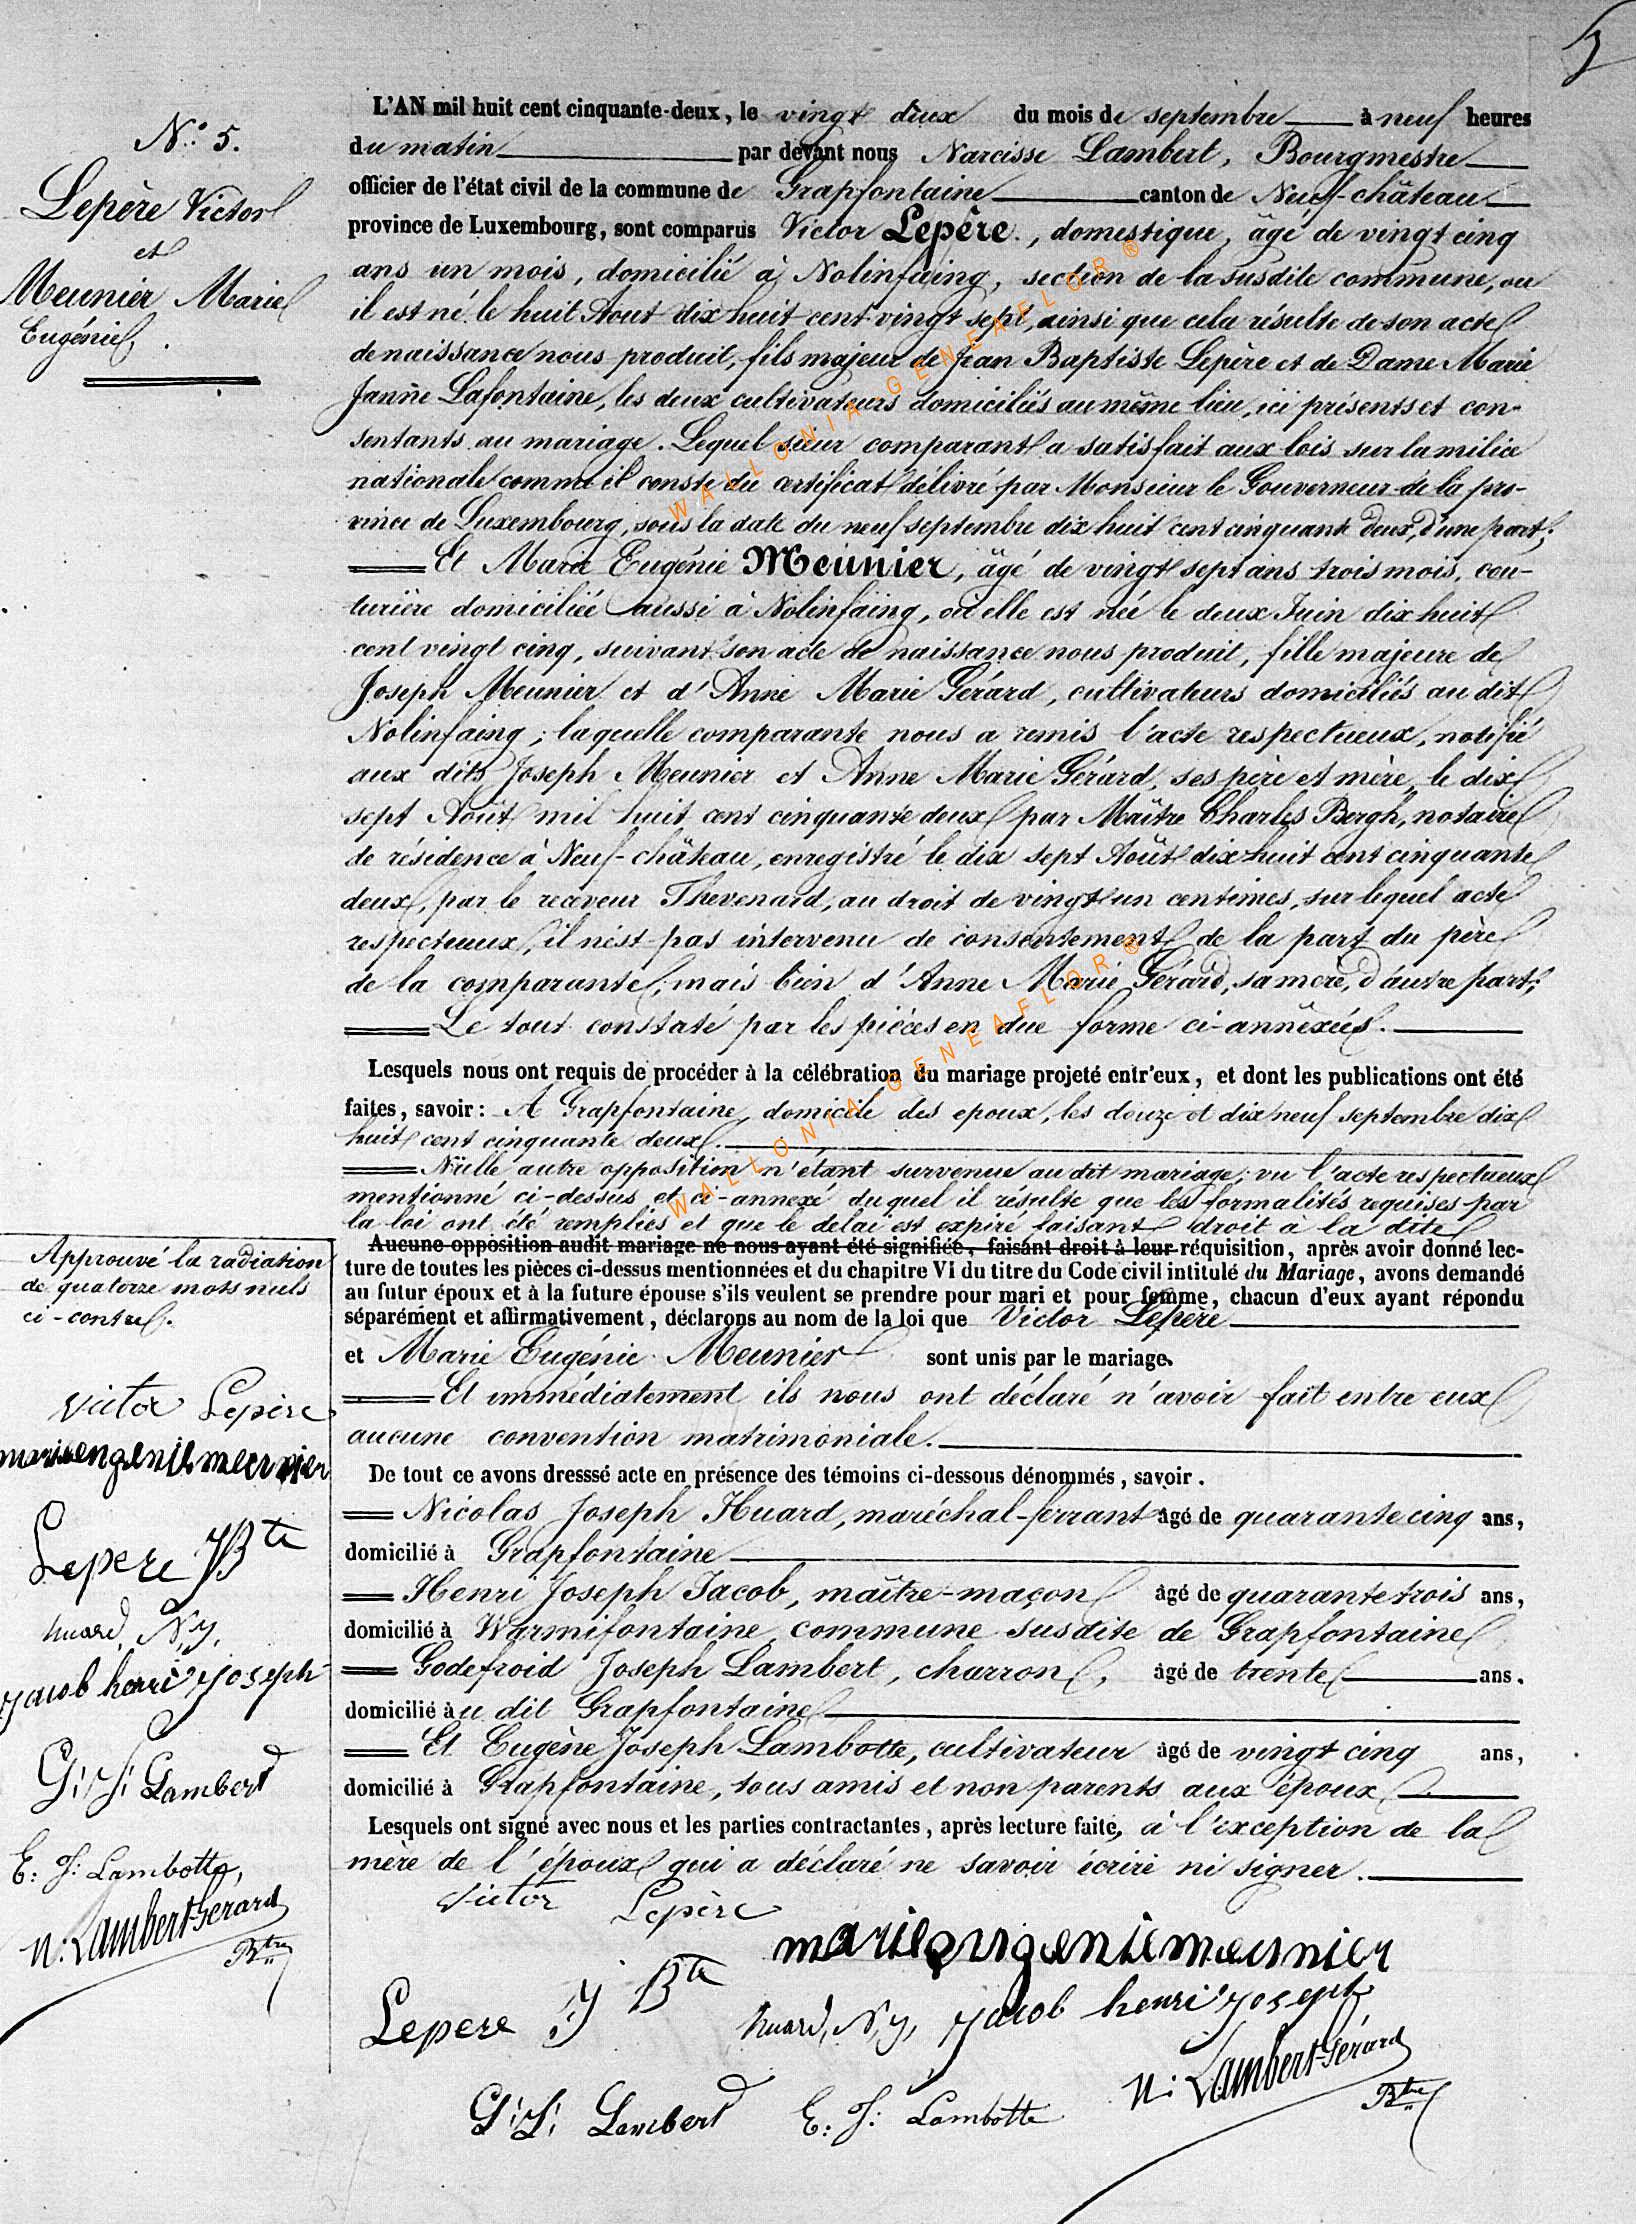 5
N.° 5.
Lepère Victor
et
Meunier Marie
Eugénie.
L'AN mil huit cent cinquante-deux, le vingt deux du mois de septembre à neuf heures
du matin par devant nous Narcisse Lambert, Bourgmestre
officier de l'état civil de la commune de Grapfontaine canton de Neuf-château
province de Luxembourg, sont comparus Victor Lepère, domestique, âgé de vingt cinq
ans un mois, domicilié à Nolinfaing, section de la susdite commune, où
il est né le huit Aout dix huit cent vingt sept, ainsi que cela résulte de son acte
de naissance nous produit, fils majeur de Jean Baptiste Lepère et de Dame Marie
Janne Lafontaine, les deux cultivateurs domiciliés au même lieu, ici présents et con-
sentants au mariage. Lequel sieur comparant a satisfait aux lois sur la milice
nationale comme il conste du certificat délivré par Monsieur le Gouverneur de la pro-
vince de Luxembourg, sous la date du neuf septembre dix huit cent cinquante deux, d'une part;
Et Marie Eugénie Meunier, âgé de vingt sept ans trois mois, cou-
turière domiciliée aussi à Nolinfaing, où elle est née le deux Juin dix huit
cent vingt cinq, suivant son acte de naissance nous produit, fille majeure de
Joseph Meunier et d'Anne Marie Gérard, cultivateurs domiciliés au dit
Nolinfaing; laquelle comparante nous a remis l'acte respectueux, notifié
aux dits Joseph Meunier et Anne Marie Gérard, ses père et mère, le dix
sept Août mil huit cent cinquante deux par Maître Charles Bergh, notaire
de résidence à Neuf-château, enregistré le dix sept Août dix huit cent cinquante
deux, par le receveur Thevenard, au droit de vingt un centimes, sur lequel acte
respectueux, il n'est pas intervenu de consentement de la part du père
de la comparante, mais bien d'Anne Marie Gérard, sa mère, d'autre part;
Le tout constaté par les pièces en due forme ci-annexées.
Lesquels nous ont requis de procéder à la célébration du mariage projeté entr'eux, et dont les publications ont été
faites, savoir: A Grapfontaine, domicile des epoux, les douze et dix neuf septembre dix
huit cent cinquante deux.
Nulle autre opposition n'étant survenue au dit mariage; vu l'acte respectueux
mentionné ci-dessus et ci-annexé duquel il résulte que les formalités requises par
la loi ont été remplies et que le délai est expiré faisant droit à la dite
Aucune opposition audit mariage ne nous ayant été signifiée, faisant droit à leur réquisition, après avoir donné lec-
ture de toutes les pièces ci-dessus mentionnées et du chapitre VI du titre du Code civil intitulé du Mariage, avons demandé
au futur époux et à la future épouse s'ils veulent se prendre pour mari et pour femme, chacun d'eux ayant répondu
séparément et affirmativement, déclarons au nom de la loi que Victor Lepère
et Marie Eugénie Meunier sont unis par le mariage.
Et immédiatement ils nous ont déclaré n'avoir fait entre eux
aucune convention matrimoniale.
De tout ce avons dresssé acte en présence des témoins ci-dessous dénommés, savoir.
Nicolas Joseph Huard, maréchal-ferrant âgé de quarante cinq ans,
domicilié à Grapfontaine
Henri Joseph Jacob, maître-maçon âgé de quarante trois ans,
domicilié à Warmifontaine commune susdite de Grapfontaine
Godefroid Joseph Lambert, charron, âgé de trente ans.
domicilié au dit Grapfontaine
Et Eugène Joseph Lambotte, cultivateur âgé de vingt cinq ans,
domicilié à Grapfontaine, tous amis et non parents aux époux
Lesquels ont signé avec nous et les parties contractantes, après lecture faite, à l'exception de la
mère de l'époux qui a déclaré ne savoir écrire ni signer.
Victor Lepère
marie eugenie meunier
Lepere J Bte
huard, N, J, Jacob henri Joseph
N: Lambert-Gérard
Btre
G: J: Lambert E: J: Lambotte
Approuvé la radiation
de quatorze mots nuls
ci-contre.
Victor Lepère
marie eugenie meunier
Lepere J Bte
huard, N, J,
Jacob henri Joseph
G: J: Lambert
E: J: Lambotte,
N: Lambert-Gerard
Btre
WALLONIA-GENEAFLOR®
WALLONIA-GENEAFLOR®